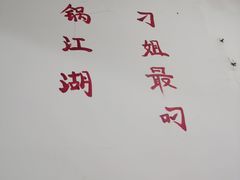 锅江湖
刁姐最叼